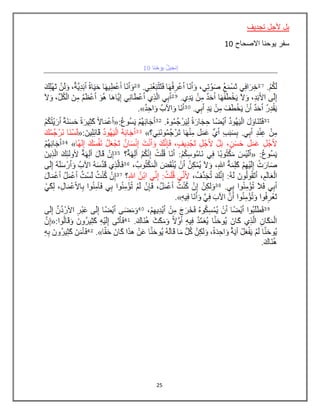 بل لأجل تجديف
سفر يوحنا الاصحاح 10
إنجيل يوحنا 10
لَكُمْ. 27خِرَافِي تَسْمَعُ صَوْتِي، وَأَنَا أَعْرِفُهَا فَتَتْبَعُنِي. 28وَأَنَا أُعْطِيهَا حَيَاةً أَبَدِيَّةً، وَلَنْ تَهْلِكَ
إِلَى الأَبَدِ، وَلاَ يَخْطَفُهَا أَحَدٌ مِنْ يَدِي. 29أَبِي الَّذِي أَعْطَانِي إِيَّاهَا هُوَ أَعْظَمُ مِنَ الْكُلِّ، وَلاَ
يَقْدِرُ أَحَدٌ أَنْ يَخْطَفَ مِنْ يَدِ أَبِي. 30أَنَا وَالآبُ وَاحِدٌ».
31فَتَنَاوَلَ الْيَهُودُ أَيْضًا حِجَارَةً لِيَرْجُمُوهُ. 32أَجَابَهُمْ يَسُوعُ:«أَعْمَالاً كَثِيرَةً حَسَنَةً أَرَيْتُكُمْ
مِنْ عِنْدِ أَبِي. بِسَبَبِ أَيِّ عَمَل مِنْهَا تَرْجُمُونَنِي؟» 33أَجَابَهُ الْيَهُودُ قَائِلِينَ:«لَسْنَا نَرْجُمُكَ
لأَجْلِ عَمَل حَسَنٍ، بَلْ لأَجْلِ تَجْدِيفٍ، فَإِنَّكَ وَأَنْتَ إِنْسَانٌ تَجْعَلُ نَفْسَكَ إِلهًا» 34أَجَابَهُمْ
يَسُوعُ: «أَلَيْسَ مَكْتُوبًا فِي نَامُوسِكُمْ: أَنَا قُلْتُ إِنَّكُمْ آلِهَةٌ؟ 35إِنْ قَالَ آلِهَةٌ لأُولئِكَ الَّذِينَ
صَارَتْ إِلَيْهِمْ كَلِمَةُ اللهِ، وَلاَ يُمْكِنُ أَنْ يُنْقَضَ الْمَكْتُوبُ، 36فَالَّذِي قَدَّسَهُ الآبُ وَأَرْسَلَهُ إِلَى
الْعَالَمِ، أَتَقُولُونَ لَهُ: إِنَّكَ تُجَدِّفُ، لأَنِّي قُلْتُ: إِنِّي ابْنُ اللهِ؟ 37إِنْ كُنْتُ لَسْتُ أَعْمَلُ أَعْمَالَ
أَبِي فَلاَ تُؤْمِنُوا بِي. 38وَلكِنْ إِنْ كُنْتُ أَعْمَلُ، فَإِنْ لَمْ تُؤْمِنُوا بِي فَآمِنُوا بِالأَعْمَالِ، لِكَيْ
تَعْرِفُوا وَتُؤْمِنُوا أَنَّ الآبَ فِيَّ وَأَنَا فِيهِ».
39فَطَلَبُوا أَيْضًا أَنْ يُمْسِكُوهُ فَخَرَجَ مِنْ أَيْدِيهِمْ، 40وَمَضَى أَيْضًا إِلَى عَبْرِ الأُرْدُنِّ إِلَى
الْمَكَانِ الَّذِي كَانَ يُوحَنَّا يُعَمِّدُ فِيهِ أَوَّلاً وَمَكَثَ هُنَاكَ. 41فَأَتَى إِلَيْهِ كَثِيرُونَ وَقَالُوا:«إِنَّ
يُوحَنَّا لَمْ يَفْعَلْ آيَةً وَاحِدَةً، وَلكِنْ كُلُّ مَا قَالَهُ يُوحَنَّا عَنْ هذَا كَانَ حَقًّا». 42فَآمَنَ كَثِيرُونَ بِهِ
هُنَاكَ.
25